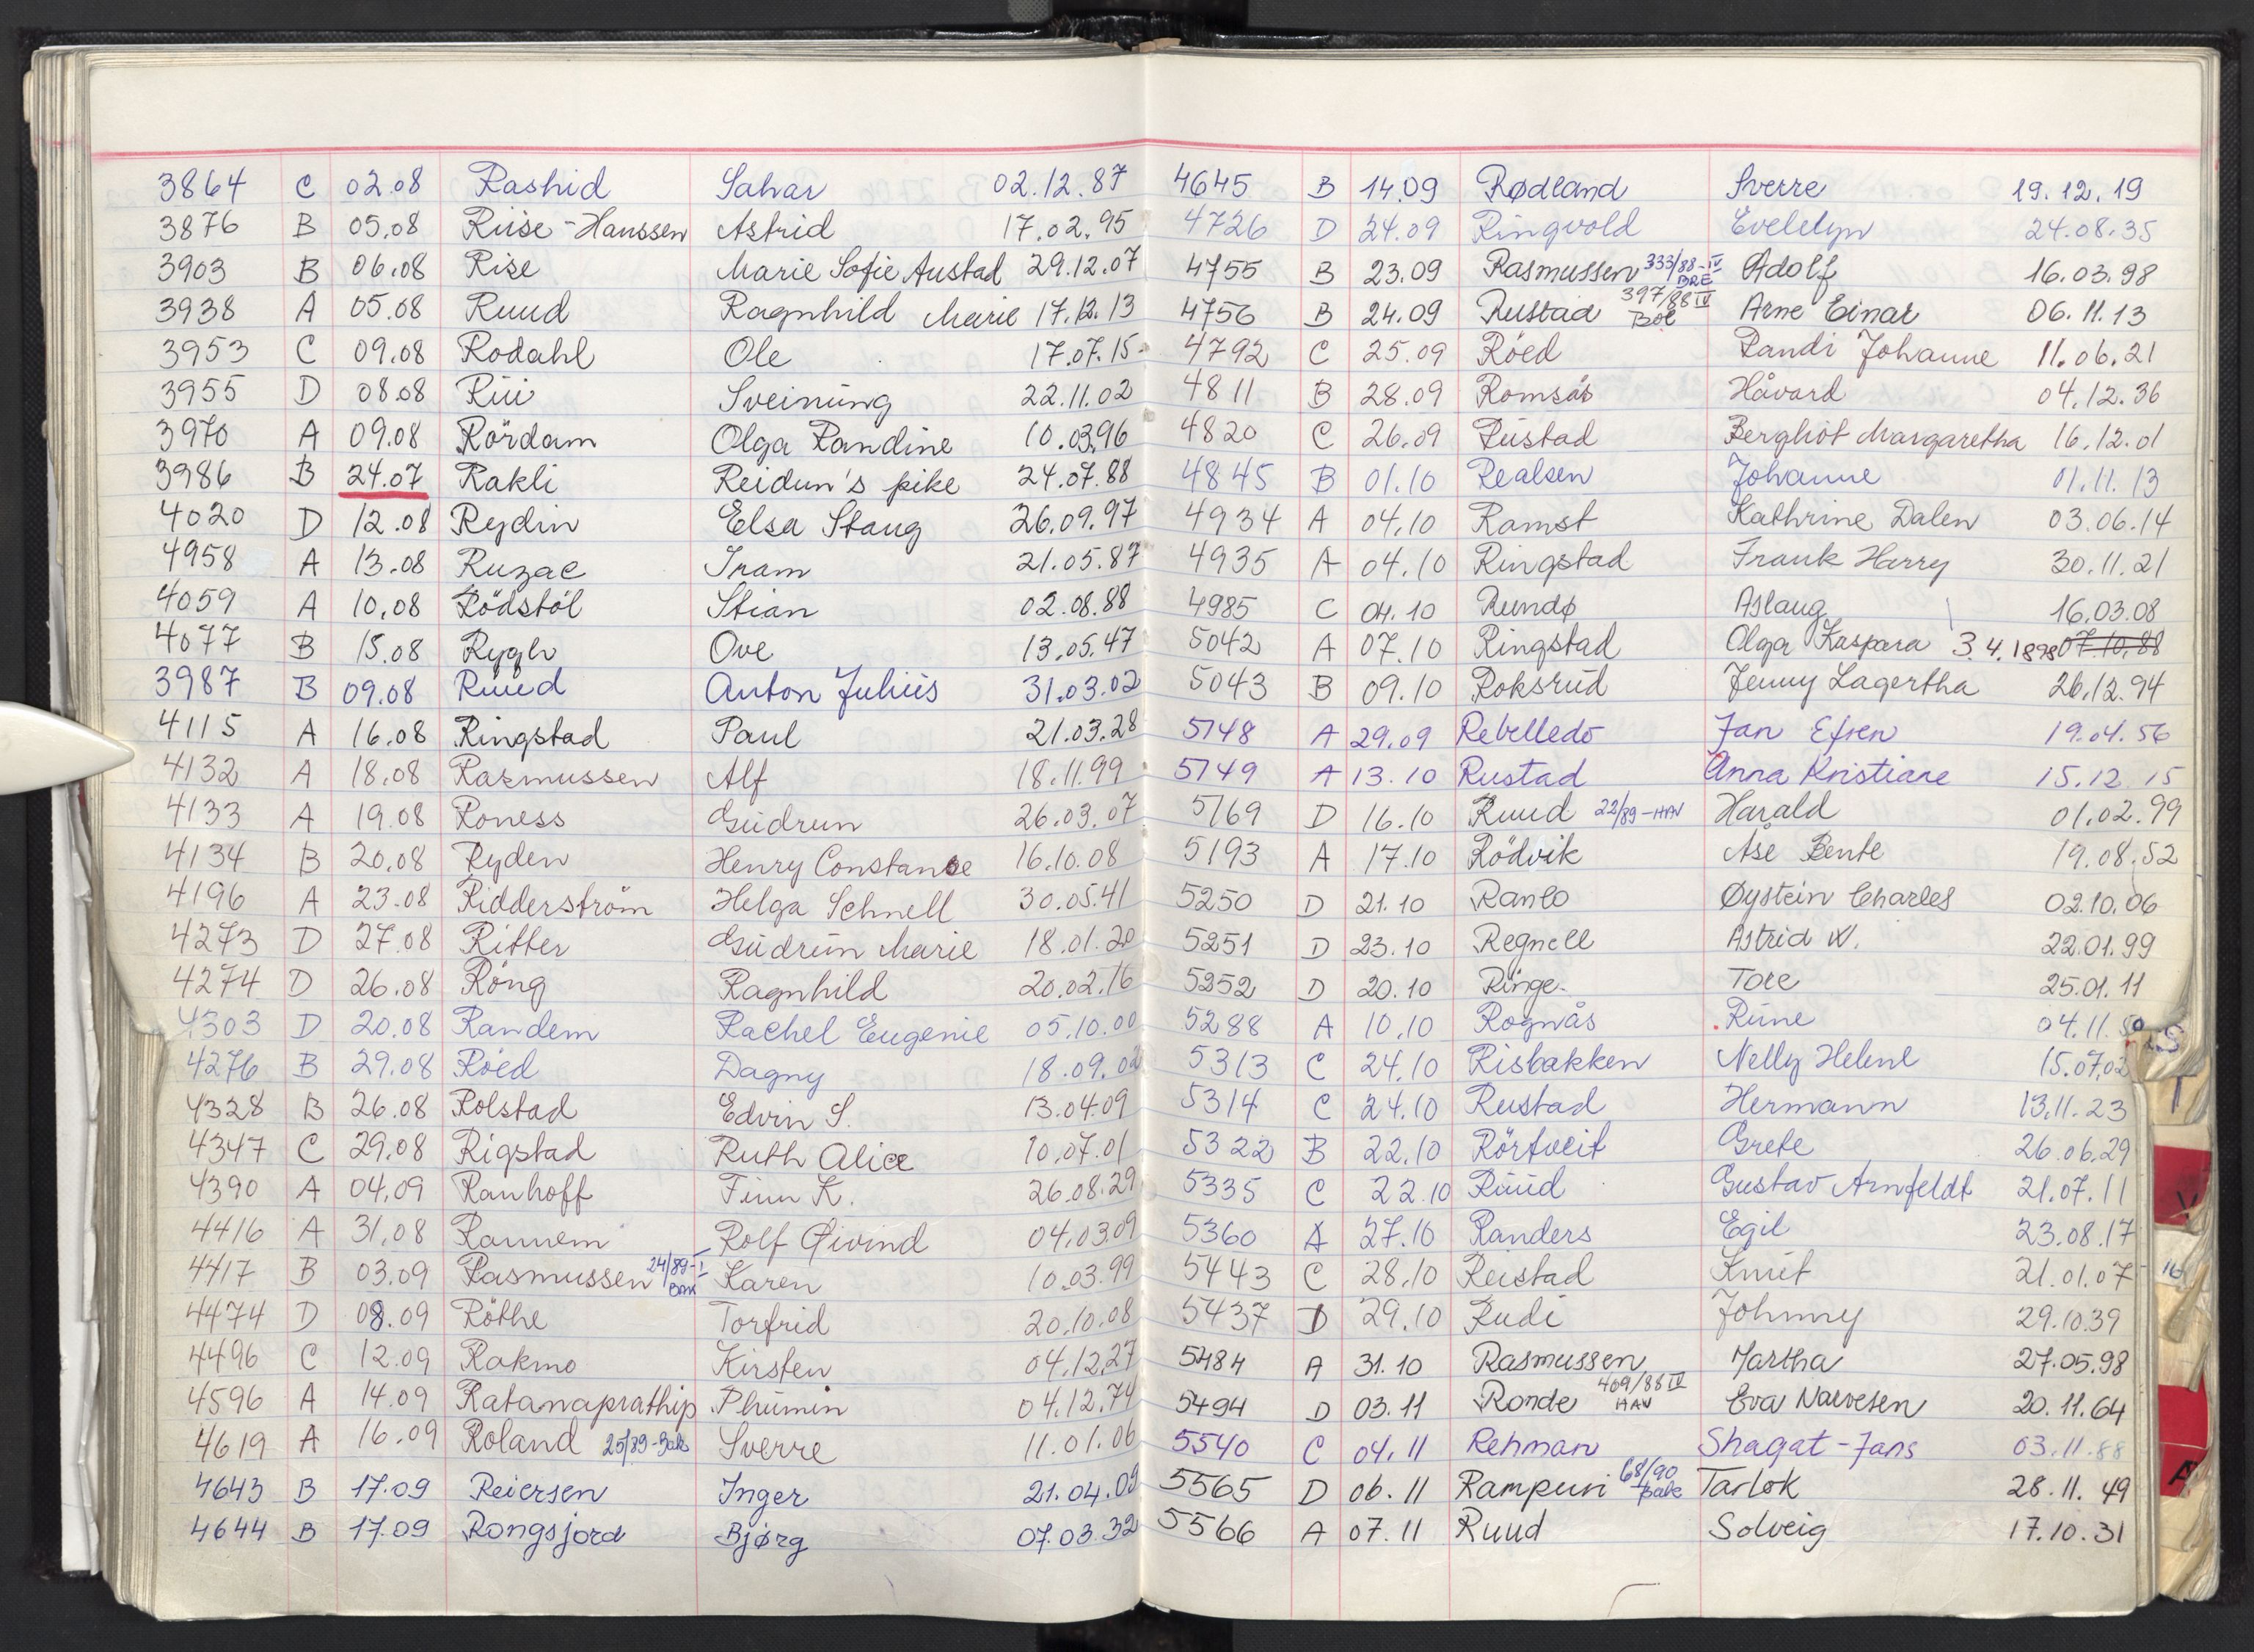 3864 C 02.08 Rashid Sahar 02.12.87
3876 B 05.08 Riise-Hanssen Astrid 17.02.95
3903 B 06.08 Rise Marie Sofie Austad 29.12.07
3938 A 05.08 Ruud Ragnhild Marie 17.12.13
3953 C 09.08 Rodahl Ole 17.07.15
3955 D 08.08 Rui Sveinung 22.11.02
3970 A 09.08 Rördam Olga Randine 10.03.96
3986 B 24.07 Rakli Reidun's pike 24.07.88
4020 D 12.08 Rydin Elsa Staug 26.09.97
4958 A 13.08 Ruzae Iram 21.05.87
4059 A 10.08 Rödstöl Stian 02.08.88
4077 B 15.08 Rygh Ove 13.05.47
3987 B 09.08 Ruud Anton Julius 31.03.02
4115 A 16.08 Ringstad Paul 21.03.28
4132 A 18.08 Rasmussen Alf 18.11.99
4133 A 19.08 Roness Gudrun 26.03.07
4134 B 20.08 Ryden Henry Constance 16.10.08
4196 A 23.08 Ridderström Helga Schnell 30.05.41
4273 D 27.08 Ritter Gudrun Marie 18.01.20
4274 D 26.08 Röng Ragnhild 20.02.16
4303 D 20.08 Randem Rachel Eugenie 05.10.00
4276 B 29.08 Röed Dagny 18.09.02
4328 B 26.08 Rolstad Edvin S. 13.04.09
4347 C 29.08 Rigstad Ruth Alice 10.07.01
4390 A 04.09 Ranhoff Finn K. 26.08.29
4416 A 31.08 Rannem Rolf Øivind 04.03.09
4417 B 03.09 Rasmussen 24/89-I BAK Karen 10.03.99
4474 D 08.09 Röthe Torfrid 20.10.08
4496 C 12.09 Rakmo Kirsten 04.12.27
4596 A 14.09 Ratanaprathip Phumin 04.12.74
4619 A 16.09 Roland 25/89-Bak Sverre 11.01.06
4643 B 17.09 Reiersen Inger 21.04.09
4644 B 17.09 Rongsjord Bjørg 07.03.32
4645 B 14.09 Rødland Sverre 19.12.19
4726 D 24.09 Ringvold Evelelyn 24.08.35
4755 B 23.09 Rasmussen 333/88-IV BRE Adolf 16.03.98
4756 B 24.09 Rustad 397/88 IV Böl Arne Einar 06.11.13
4792 C 25.09 Röed Randi Johanne 11.06.21
4811 B 28.09 Romsås Håvard 04.12.36
4820 C 26.09 Rustad Bergliot Margaretha 16.12.01
4845 B 01.10 Realsen Johanne 01.11.13
4934 A 04.10 Ramst Kathrine Dalen 03.06.14
4935 A 04.10 Ringstad Frank Harry 30.11.21
4985 C 04.10 Rundø Aslaug 16.03.08
5042 A 07.10 Ringstad Olga Kaspara 3.4.1898 07.10.88
5043 B 09.10 Roksrud Jenny Lagertha 26.12.94
5148 A 29.09 Rebelledo Jan Efren 19.04.56
5149 A 13.10 Rustad Anna Kristiane 15.12.15
5169 D 16.10 Ruud 22/89-HAV Harald 01.02.99
5193 A 17.10 Rödvik Åse Bente 19.08.52
5250 D 21.10 Ranlo Øystein Charles 02.10.06
5251 D 23.10 Regnell Astrid W. 22.01.99
5252 D 20.10 Ringe Tore 25.01.11
5288 A 10.10 Rognås Rune 04.11.50
5313 C 24.10 Risbakken Nelly Helene 15.07.02
5314 C 24.10 Rustad Hermann 13.11.23
5322 B 22.10 Rörtveit Grete 26.06.29
5335 C 22.10 Ruud Gustav Arnfeldt 21.07.11
5360 A 27.10 Randers Egil 23.08.17
5443 C 28.10 Reistad Knut 21.01.07
5437 D 29.10 Rudi Johnny 29.10.39
5484 A 31.10 Rasmussen Martha 27.05.98
5494 D 03.11 Ronde 409/88 IV HAV Eva Narvesen 20.11.64
5540 C 04.11 Rehman Shagat-Jans 03.11.88
5565 D 06.11 Rampuri 68/90 Bak Tarlok 28.11.49
5566 A 07.11 Ruud Solveig 17.10.31